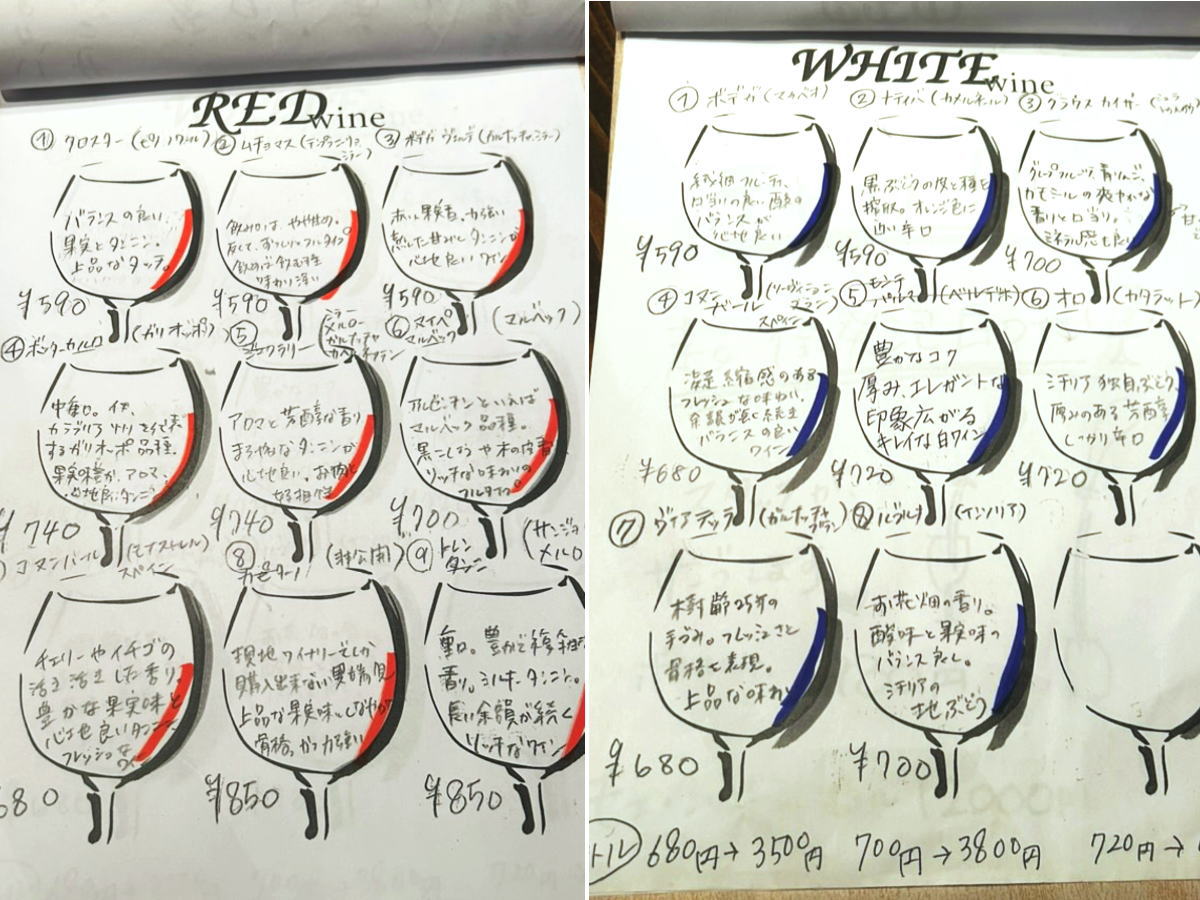 RED wine
① クロスター (ピノノワール)
バランスの良い、
果実とタンニン。
上品なタッチ。
¥590
② ムチョマス (テンプラニーリョ、シラー)
飲み口は、やや甘め。
反して、ずっしりとフルタイプ
飲めば飲む程
味わい深い
¥590
③ ボデガ ヴェルデ (ガルナッチャ・シラー)
赤い果実香。力強い
熟した甘みとタンニンが
心地良いワイン
¥590
④ ボッターカルロ (ガリオッポ)
中重口。イタ、
カラブリア
するガリオッポ品種。
果実味豊か、アロマ、
心地良いタンニン
¥740
⑤
シラー
メルロー
ガルナッチャ
カベルネフラン
アロマと芳醇な香り
まろやかなタンニンが
心地良い。お肉と
好相性
¥740
⑥ マイパ マルベック (マルベック)
アルゼンチンといえば
マルベック品種。
黒こしょうや木の皮香
リッチな味わいの
フルタイプ。
¥700
コヌンバール (モナストレル)
スペイン
チェリーやイチゴの
活き活きした香り、
豊かな果実味と
心地良いタンニン、
フレッシュな
680
⑧ カセターノ (非公開)
現地ワイナリーでしか
購入出来ない
上品な果実味、しなやか
骨格、かつ力強い
¥850
⑨ トレンタンジ (サンジョ
メルロ
重口。豊かで複雑
香り。シルキータンニン。
長い余韻が続く
リッチなワイン
¥850
WHITE wine
① ボデガ (マカベオ)
繊細フルーティ、
口当りの良い酸の
バランスが
心地良い
¥590
② ナティバ (カメルネール)
黒ぶどうの皮と種を
搾取。オレンジ色に
近い辛口
¥590
③ クラウス カイザー
グレープフルーツ、青りんご、
カモミールの爽やかな
香りと口当り。
ミネラル感も良い
¥700
④ コヌンバール (ソーヴィニヨンブラン)
スペイン
凝縮感のある
フレッシュな味わい、
余韻が長く続き
バランスの良い
ワイン
¥680
⑤ モンテ (ベルデホ)
豊かなコク
厚み、エレガントな
印象広がる
キレイな白ワイン
¥720
⑥ オロ (カタラット)
シチリア独自ぶどう、
厚みのある芳醇
しっかり辛口
¥720
⑦ ヴィアテッラ (ガルナッチャブラン)
樹齢25年の
手づみ。フレッシュさと
骨格を表現。
上品な味わい
¥680
⑧ (インソリア)
お花畑の香り。
酸味と果実味の
バランス良し。
シチリアの
地ぶどう
¥700
トル 680円→3500円 700円→3800円 720円→